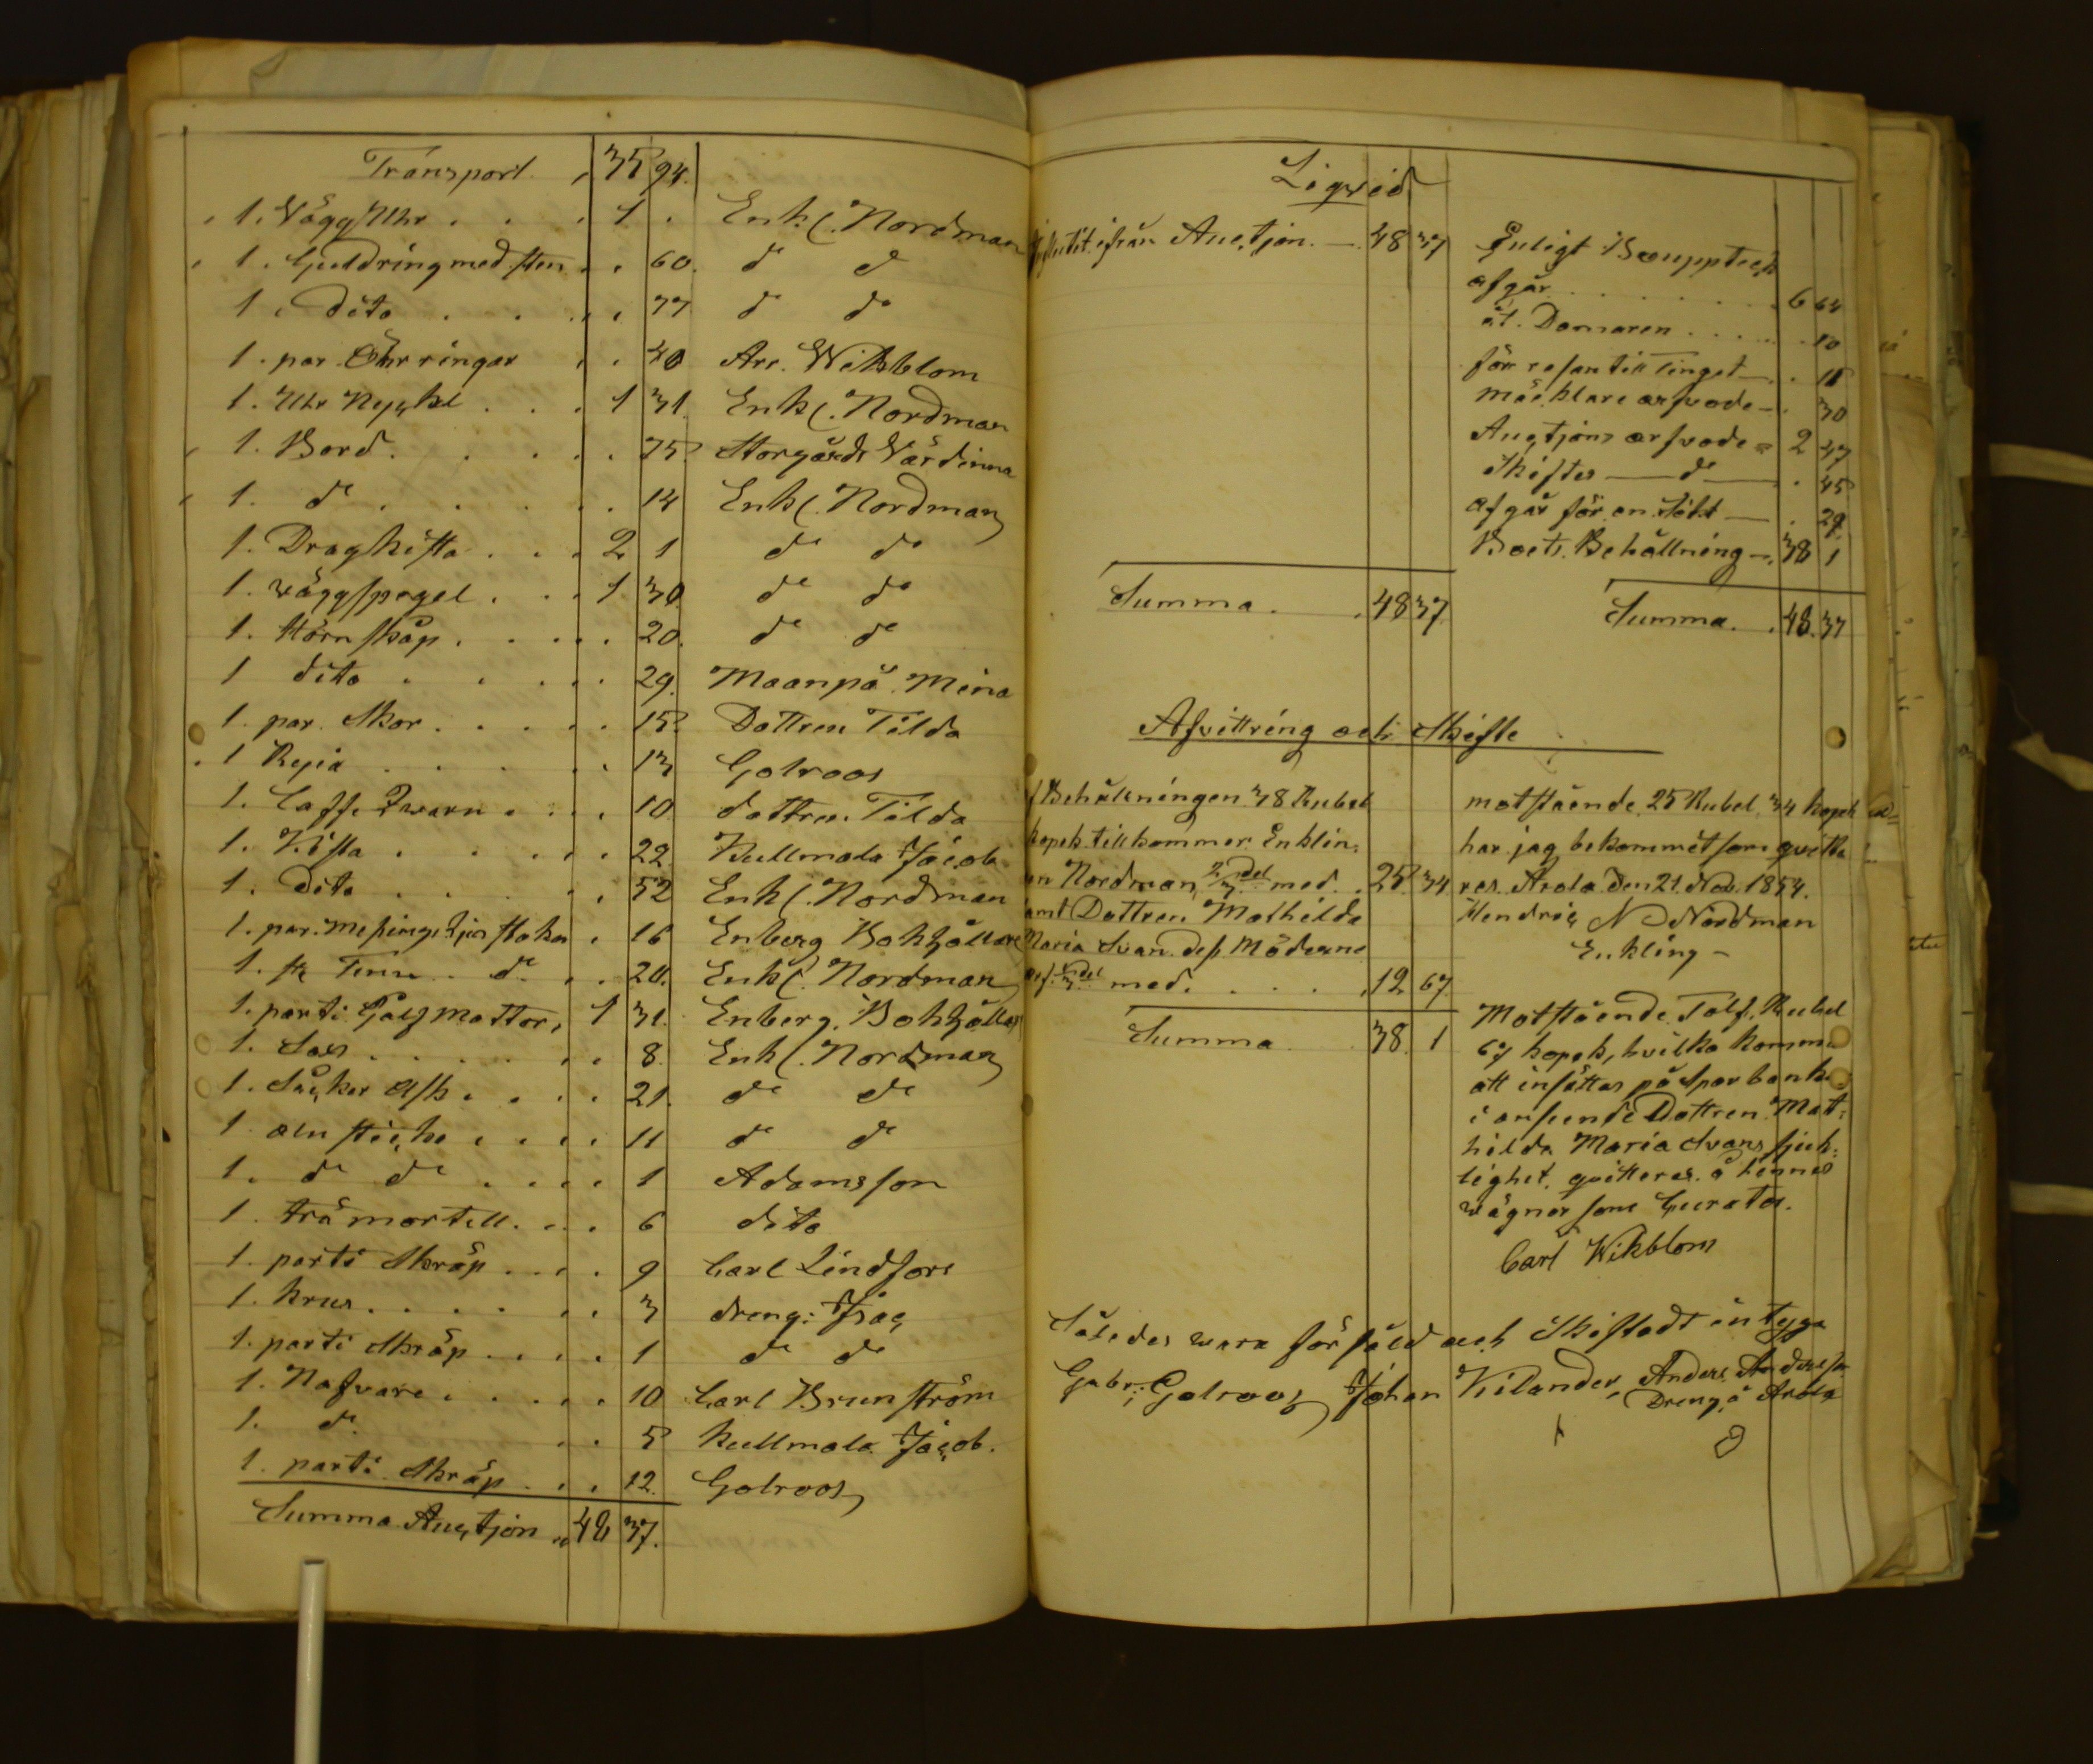 Transport 35 94.
1. Vägg Uhr . . . 1 . Enk C. Nordman
1. Guldring med sten . . 60. do do
1. dito . . . . 77 do do
1. par Öhr ringar . . 40 Arr. Wikblom
1. Uhr Nyckel . . . 1 31. Enk C. Nordman
1. Bord . . . . 75 Storgårds Värdinna
1. do . . . . 14 Enk C. Nordman
1. Dragkista . . . 2 1 do do
1. väggspegel . . 1 30 do do
1. Hörn skåp . . . . 20. do do
1 dito . . . . 29. Maanpä Mina
1. par Skor . . . . 15. Dottren Tilda
1 . . . . 13 Golroos
1. Caffe Qwarn . . . 10 dottren Tilda
1. Kista . . . . 22. Kullmala Jacob
1. dito . . . . 52 Enk C. Nordman
1. par. Messings Ljusstakar . 16 Enberg Bokhållare
1. st Tenn do . . 20. Enk C. Nordman
1. parti Golf Mattor, 1 31. Enberg. Bokhållar
1. Sax . . . . 8. Enk C. Nordman
1. Såcker Ask . . . 21. do do
1 aln sticka . . . . 11 do do
1. do do . . . . 1 Adamsson
1. trä mortell . . . 6 dito
1. parti Skräp . . . . 9 Carl Lindfors
1. Krus . . . . 3 dreng: Isac
1. parti Skräp . . . . 1 do do
1. Nafvare . . . . 10 Carl Brunström
1. do . . 5 Kullmala Jacob.
1. parti Skräp . . . 12. Golroos
Summa Auctjon 48 37.
Liqvid
Influtit ifrån Auctjon. — 48 37
Summa . . 48 37
Enligt Bouppteck
afgår . . . . . . 6 64
åt Domaren . . . . 10
för resan till Tinget — . 11
mäcklare arfvode — . 30
Auctjons arfvode = 2 47
Skiftes — do — . 45
afgår för en Såld — . 29
Boets Behållning — 38 1
Summa . . 48. 37
Afvittring och Skifte
f Behållningen 38 Rubel
kopek tillkommer Enklin:
en Nordman 2/3 del med . 25 34
samt Dottren Mathilda
Maria Svan. dess Möderne
arf 1/3 del med . . . . 12 67
Summa 38. 1
motstående 25 Rubel 34 kopek
har jag bekommit som qvitte
res Arola den 21 Nov. 1854.
Hendric N Nordman
Enkling —
Motstående Tolf Rubel
67 kopek, hvilka komma
att insättas på Spar bank
i anseende Dottren Mat:
hilda Maria Svans sjuk:
lighet. qvitteres å hennes
vägnar som Curator.
Carl Wikblom
Således vara för såld och Skiftadt intyga
Gabr: Golroos Johan Kilander, Anders Andersson
Dreng å Arola